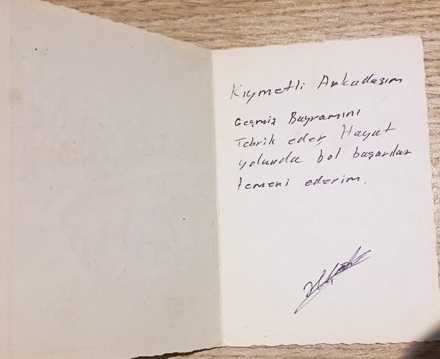 Kıymetli Arkadaşım
Geçmiş Bayramını
Tebrik eder Hayat
yolunda bol başarılar
temeni ederim.